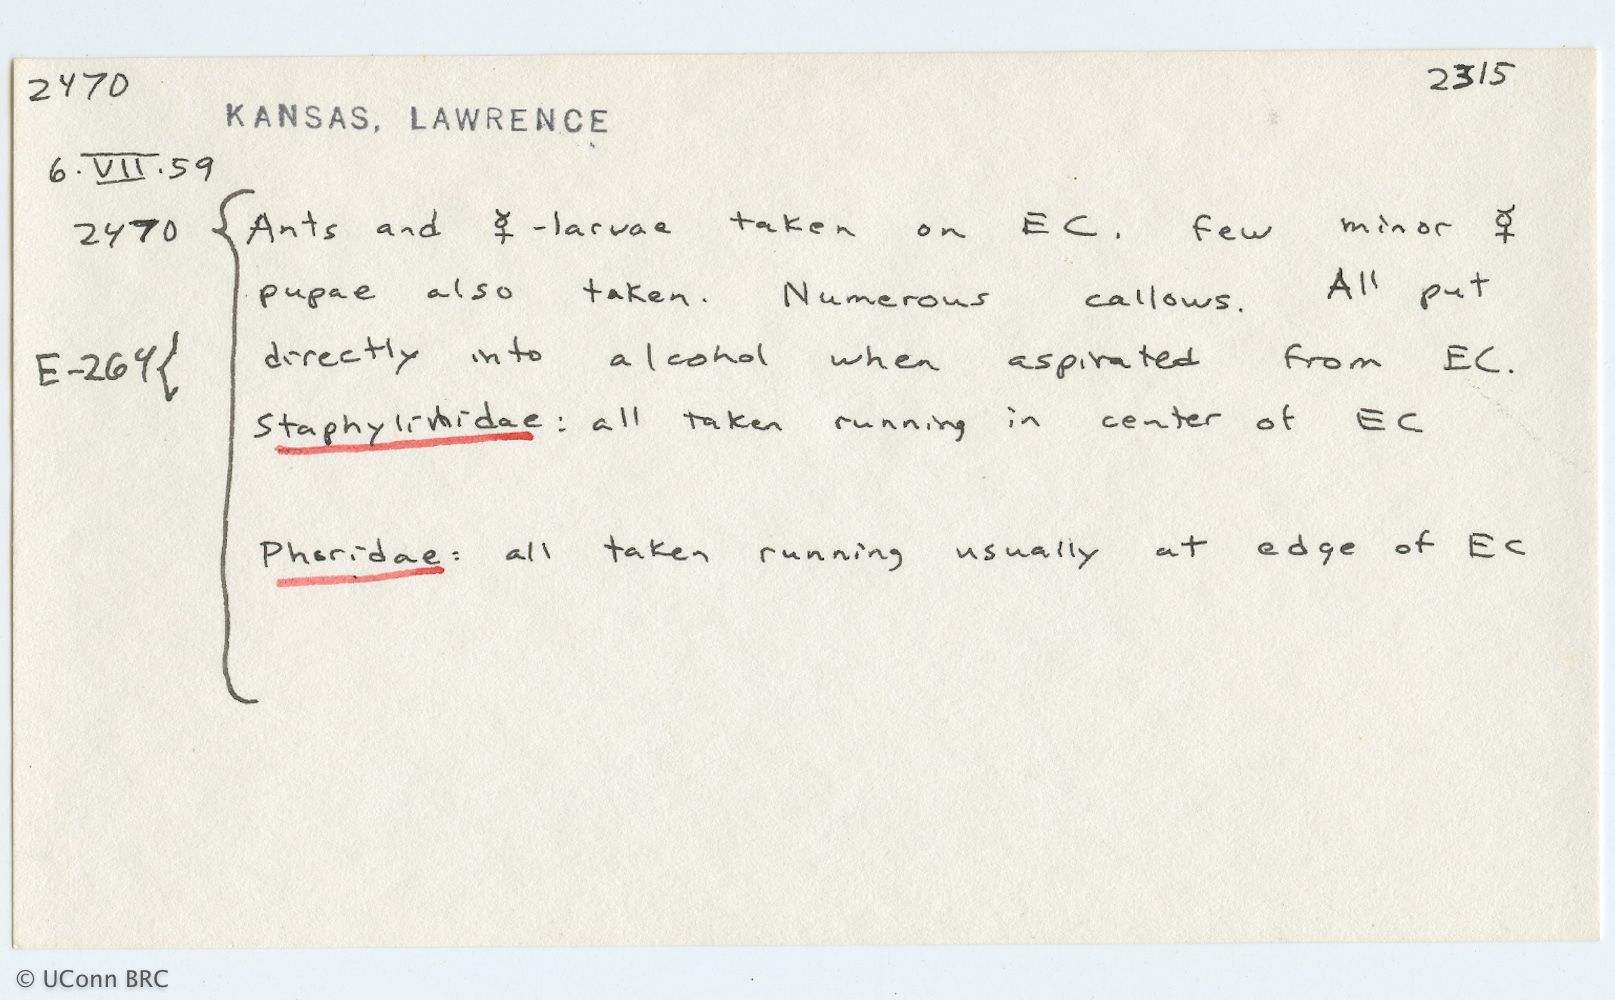 2470 2315
KANSAS, LAWRENCE
6.VII.59
2470 { Ants and ☿-larvae taken on EC. Few minor ☿
pupae also taken. Numerous callows. All put
E-264 { directly into alcohol when aspirated from EC.
Staphylinidae: all taken running in center of EC
Phoridae: all taken running usually at edge of EC
© UConn BRC